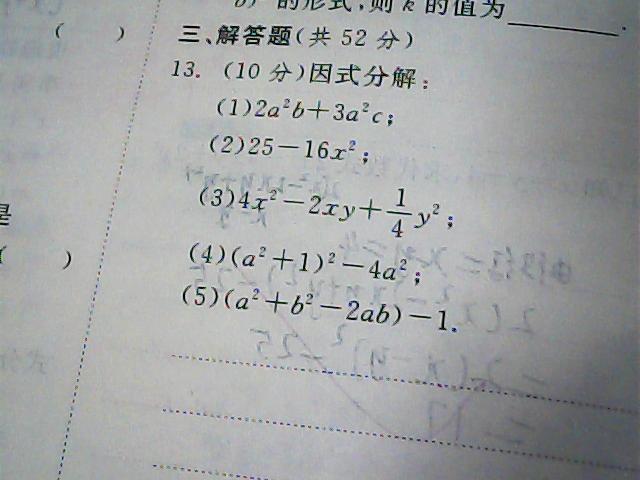 的形式,则 k 的值为
( )
三、解答题(共 52 分)
13. (10 分)因式分解:
(1)2a²b+3a²c;
(2)25−16x²;
(3)4x²−2xy+1/4y²;
是
(4)(a²+1)²−4a²;
( )
(5)(a²+b²−2ab)−1.